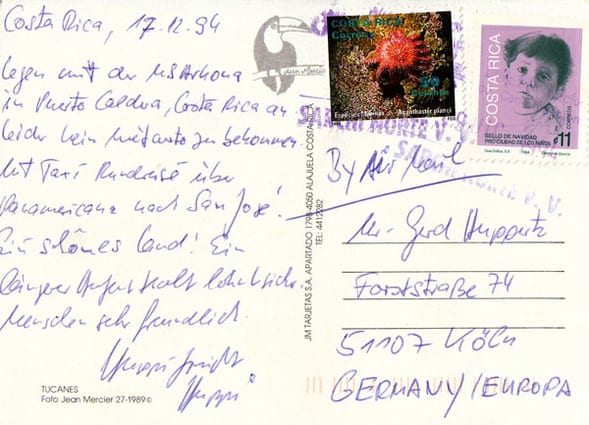 Costa Rica, 17.12.94
legen mit der MS Arkona
in Puerto Caldera, Costa Rica an.
leider kein Mietauto zu bekommen.
Mit Taxi Rundreise über
Panamericana nach San José!
Ein schönes Land! Ein
längerer Aufenthalt lohnt sich.
Menschen sehr freundlich.
Huppi
TUCANES
Foto Jean Mercier 27-1989©
JM TARJETAS S.A. APARTADO 1798-4050 ALAJUELA COSTA RICA
TEL: 4412282
COSTA RICA
Correos
50
Colones
Acanthaster planci
COSTA RICA
SELLO DE NAVIDAD
PRO CIUDAD DE LOS NIÑOS
¢11
CORREOS
By Air Mail
Mr. Gerd Huppertz
Forststraße 74
51107 KÖLN
GERMANY/EUROPA